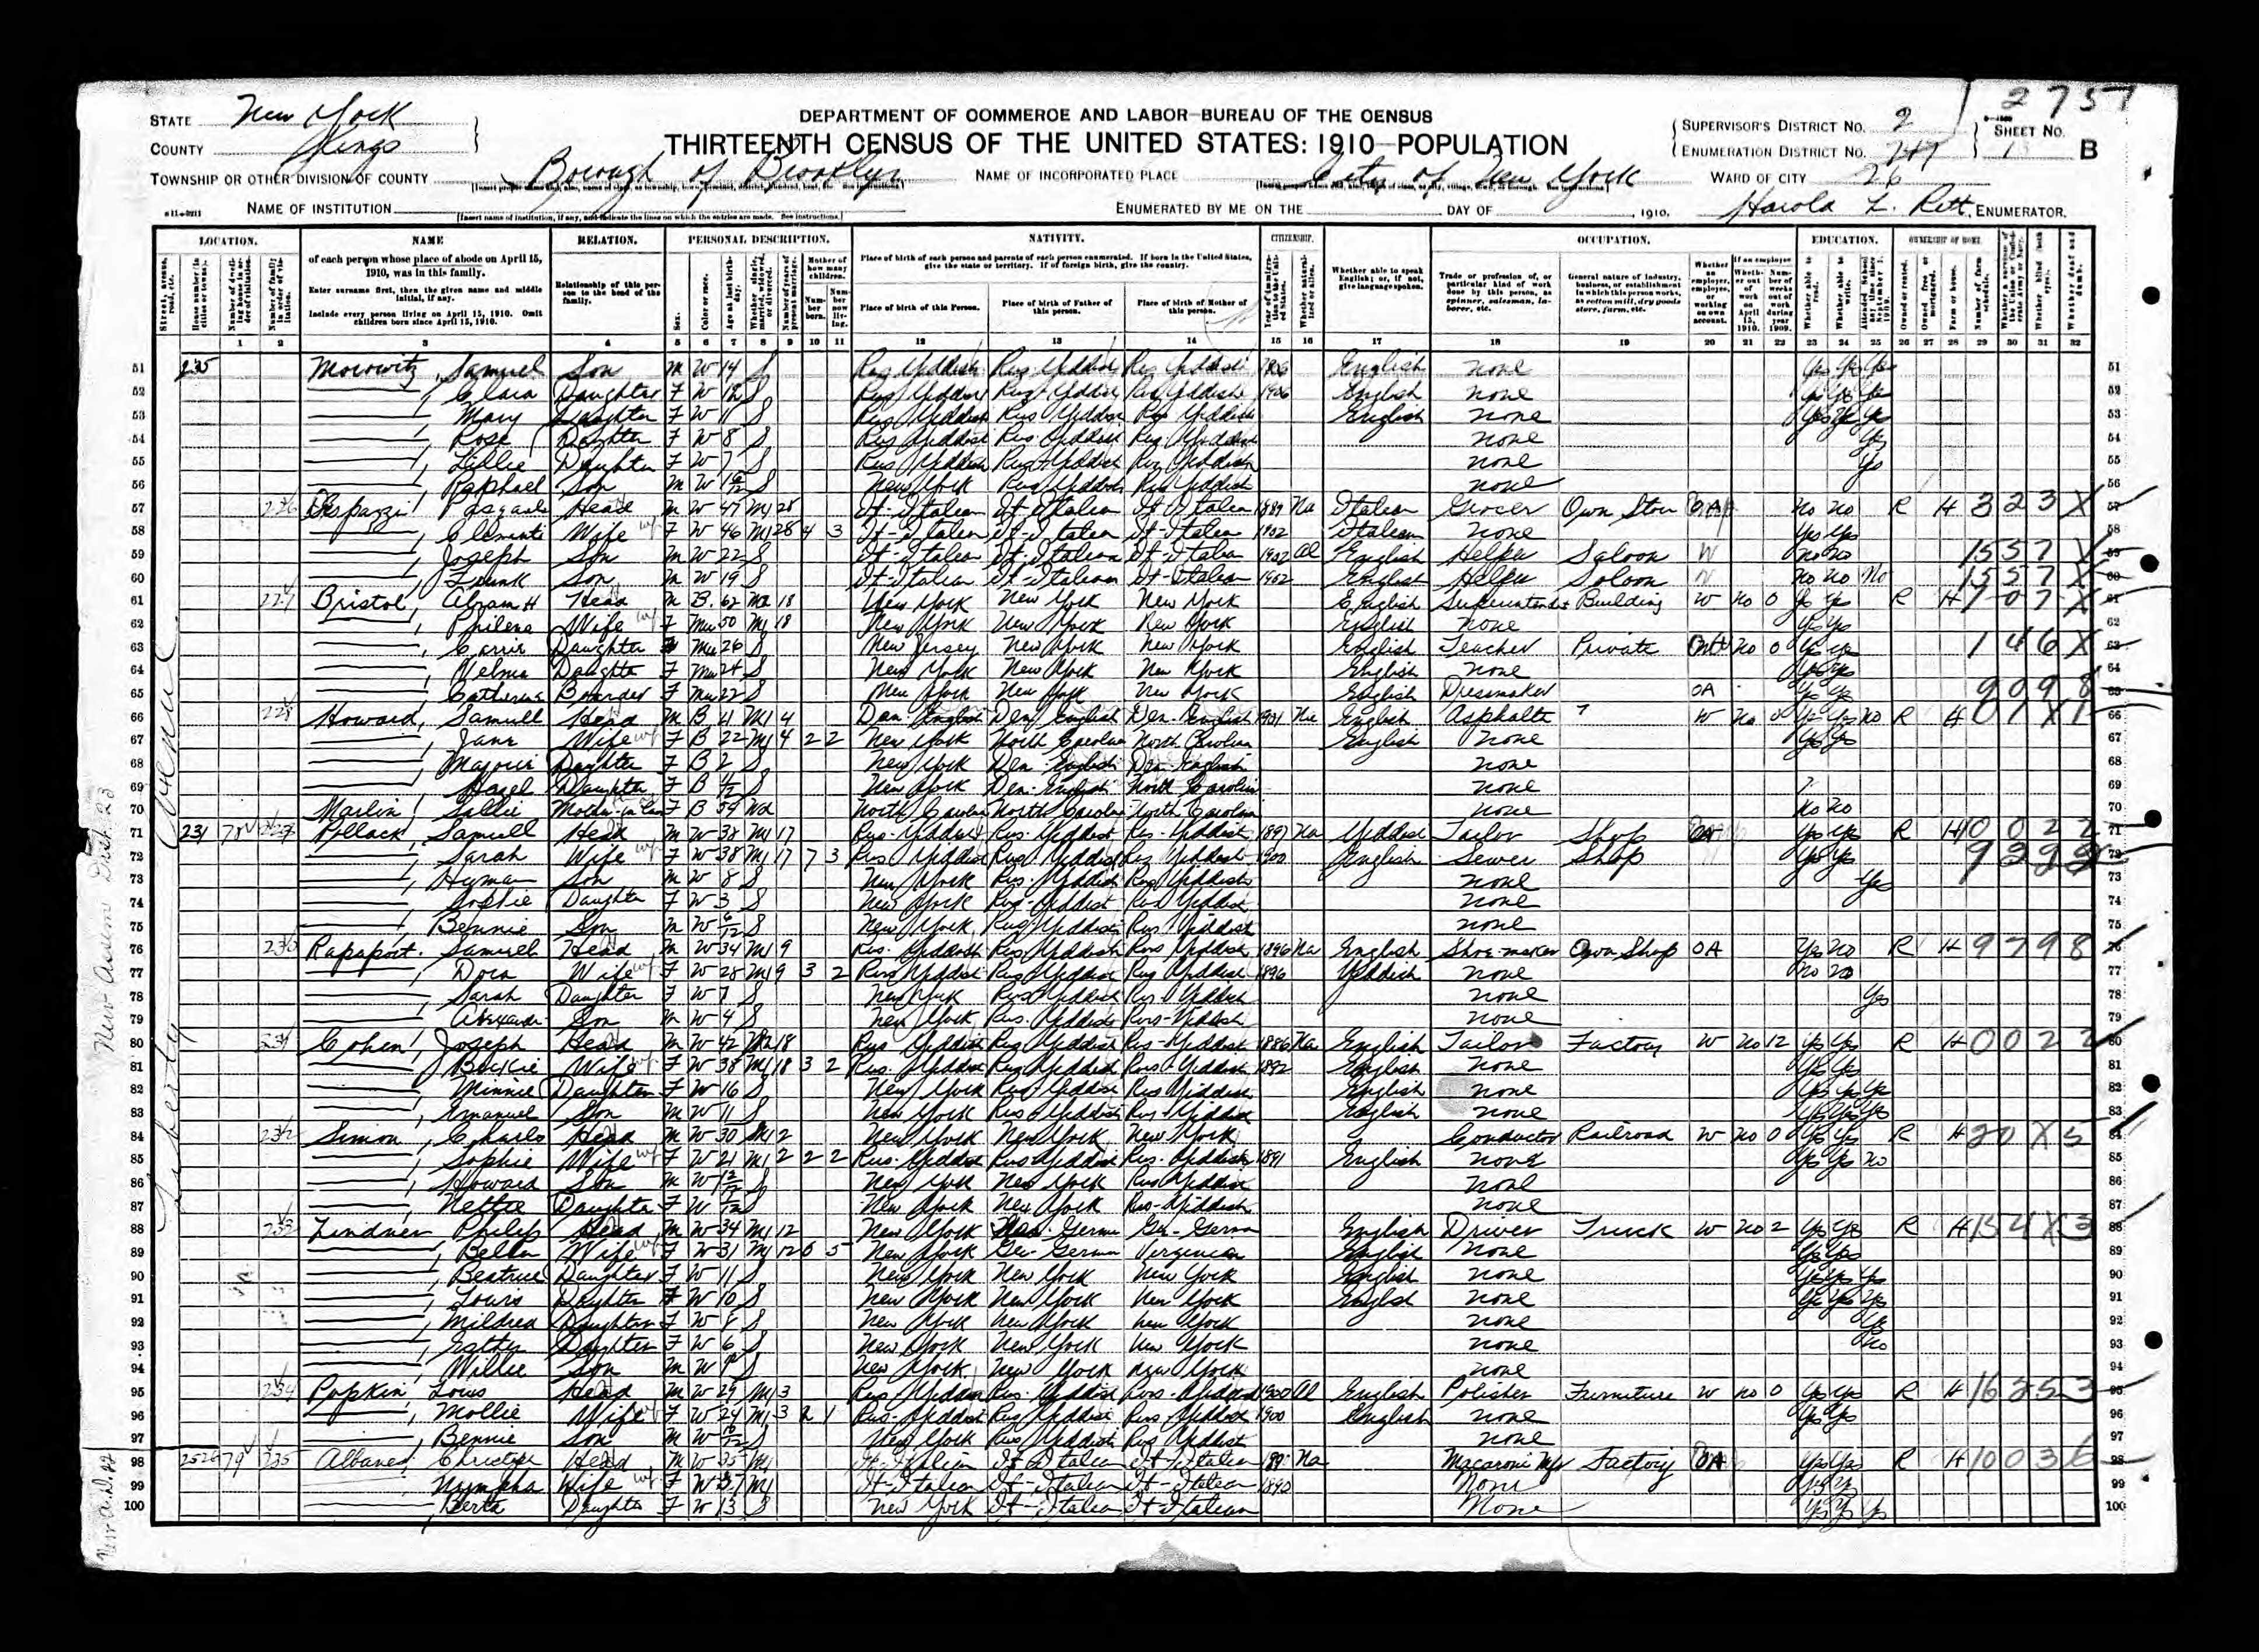 2757
STATE New York
COUNTY Kings
DEPARTMENT OF COMMERCE AND LABOR—BUREAU OF THE CENSUS
THIRTEENTH CENSUS OF THE UNITED STATES: 1910—POPULATION
SUPERVISOR'S DISTRICT No. 2
ENUMERATION DISTRICT No. 747
SHEET No. B
TOWNSHIP OR OTHER DIVISION OF COUNTY Borough of Brooklyn
NAME OF INCORPORATED PLACE City of New York
WARD OF CITY 26
NAME OF INSTITUTION
ENUMERATED BY ME ON THE DAY OF , 1910. Harold ENUMERATOR.
LOCATION. NAME RELATION. PERSONAL DESCRIPTION. NATIVITY. CITIZENSHIP. OCCUPATION. EDUCATION. OWNERSHIP OF HOME.
of each person whose place of abode on April 15, 1910, was in this family.
Enter surname first, then the given name and middle initial, if any.
Include every person living on April 15, 1910. Omit children born since April 15, 1910.
Relationship of this person to the head of the family.
Place of birth of each person and parents of each person enumerated. If born in the United States, give the state or territory. If of foreign birth, give the country.
Place of birth of this Person. Place of birth of Father of this person. Place of birth of Mother of this person.
Whether able to speak English; or, if not, give language spoken.
Trade or profession of, or particular kind of work done by this person, as spinner, salesman, laborer, etc.
General nature of industry, business, or establishment in which this person works, as cotton mill, dry goods store, farm, etc.
Liberty Avenue
51 235 Morowitz, Samuel Son M W 14 S Rus Yiddish Rus Yiddish Rus Yiddish 1906 English None Yes Yes Yes
52 Clara Daughter F W 12 S Rus Yiddish Rus Yiddish Rus Yiddish 1906 English None Yes Yes Yes
53 Mary Daughter F W 11 S Rus Yiddish Rus Yiddish Rus Yiddish English None Yes Yes Yes
54 Rose Daughter F W 8 S Rus Yiddish Rus Yiddish Rus Yiddish None Yes
55 Lillie Daughter F W 7 S Rus Yiddish Rus Yiddish Rus Yiddish None Yes
56 Raphael Son M W S New York Rus Yiddish Rus Yiddish None
57 226 Head M W 47 M1 28 It-Italian It-Italian It-Italian 1889 Na Italian Grocer Own Store OA No No R H 323X
58 Wife F W 46 M1 28 4 3 It-Italian It-Italian It-Italian 1902 Italian None Yes Yes
59 Joseph Son M W 22 S It-Italian It-Italian It-Italian 1902 Al English Helper Saloon W No No 1557
60 Frank Son M W 19 S It-Italian It-Italian It-Italian 1902 English Helper Saloon No No No 1557
61 227 Bristol, Abram H Head M B 62 18 New York New York New York English Superintendent Building W No 0 Yes Yes R H 707X
62 Philena Wife F Mu 50 M1 18 New York New York New York English None Yes Yes
63 Carrie Daughter F Mu 26 S New Jersey New York New York English Teacher Private No 0 Yes Yes 146X
64 Velma Daughter F Mu 24 S New York New York New York English None Yes Yes
65 Catherine Boarder F Mu 22 S New York New York New York English Dressmaker OA Yes Yes 9098
66 228 Howard, Samuel Head M B 41 M1 4 Den-English Den English Den-English 1901 Na English Asphalte ? W No 0 Yes Yes No R H 01X1
67 Jane Wife F B 22 M1 4 2 2 New York North Carolina North Carolina English None Yes Yes
68 Daughter F B 2 S New York Den English Den English None
69 Hazel Daughter F B S New York Den-English North Carolina None
70 Marlin, Sallie Mother-in-law F B 54 Wd North Carolina North Carolina North Carolina None No No
71 231 78 229 Pollack, Samuel Head M W 38 M1 17 Rus-Yiddish Rus-Yiddish Rus-Yiddish 1897 Na Yiddish Tailor Shop Yes Yes R H 0022
72 Sarah Wife F W 38 M1 17 7 3 Rus Yiddish Rus Yiddish Rus Yiddish 1900 English Sewer Shop Yes Yes
73 Hyman Son M W 8 S New York Rus-Yiddish Rus Yiddish None Yes
74 Sophie Daughter F W 3 S New York Rus-Yiddish Rus Yiddish None
75 Bennie Son M W 6/12 S New York Rus Yiddish Rus Yiddish None
76 230 Rapaport, Samuel Head M W 34 M1 9 Rus-Yiddish Rus Yiddish Rus Yiddish 1896 Na English Shoe-maker Own Shop OA Yes No R H 9798
77 Dora Wife F W 28 M1 9 3 2 Rus Yiddish Rus Yiddish Rus Yiddish 1896 Yiddish None No No
78 Sarah Daughter F W 7 S New York Rus Yiddish Rus-Yiddish None Yes
79 Alexander Son M W 4 S New York Rus-Yiddish Rus-Yiddish None
80 231 Cohen, Joseph Head M W 42 18 Rus Yiddish Rus Yiddish Rus-Yiddish 1886 Na English Tailor Factory W No 12 Yes Yes R H 0022
81 Beckie Wife F W 38 M1 18 3 2 Rus-Yiddish Rus Yiddish Rus-Yiddish 1892 English None Yes Yes
82 Minnie Daughter F W 16 S New York Rus Yiddish Rus Yiddish English None Yes Yes Yes
83 Emanuel Son M W 11 S New York Rus Yiddish Rus-Yiddish English None Yes Yes Yes
84 232 Simon, Charles Head M W 30 2 New York New York New York Conductor Railroad W No 0 Yes Yes R H 20X5
85 Sophie Wife F W 21 M1 2 2 2 Rus-Yiddish Rus Yiddish Rus-Yiddish 1891 English None Yes Yes No
86 Howard Son M W S New York New York Rus Yiddish None
87 Nettie Daughter F W S New York New York Rus-Yiddish None
88 233 Lindner Philip Head M W 34 M1 12 New York Germ Ger-Germ English Driver Truck W No 2 Yes Yes R H 154X3
89 Bella Wife F W 31 M1 12 6 5 New York Ger-Germ Virginian English None Yes Yes
90 Beatrice Daughter F W 11 S New York New York New York English None Yes Yes Yes
91 Louis Daughter F W 10 S New York New York New York English None Yes Yes Yes
92 Mildred Daughter F W 8 S New York New York New York None Yes
93 Esther Daughter F W 6 S New York New York New York None No
94 Willie Son M W S New York New York New York None
95 234 Popkin Louis Head M W 29 M1 3 Rus Yiddish Rus-Yiddish Rus-Yiddish 1900 Al English Polisher Furniture W No 0 Yes Yes R H 16253
96 Mollie Wife F W 24 M1 3 2 1 Rus-Yiddish Rus Yiddish Rus Yiddish 1900 English None Yes Yes
97 Bennie Son M W 10/12 S New York Rus Yiddish Rus Yiddish None
98 2526 79 235 Head M W 35 M1 It-Italian It-Italian It-Italian Na Macaroni Mfr Factory OA Yes Yes R H 10036
99 Nympha Wife F W 37 M1 It-Italian It-Italian It-Italian 1890 None Yes Yes
100 Berta Daughter F W 13 S New York It-Italian It-Italian None Yes Yes Yes